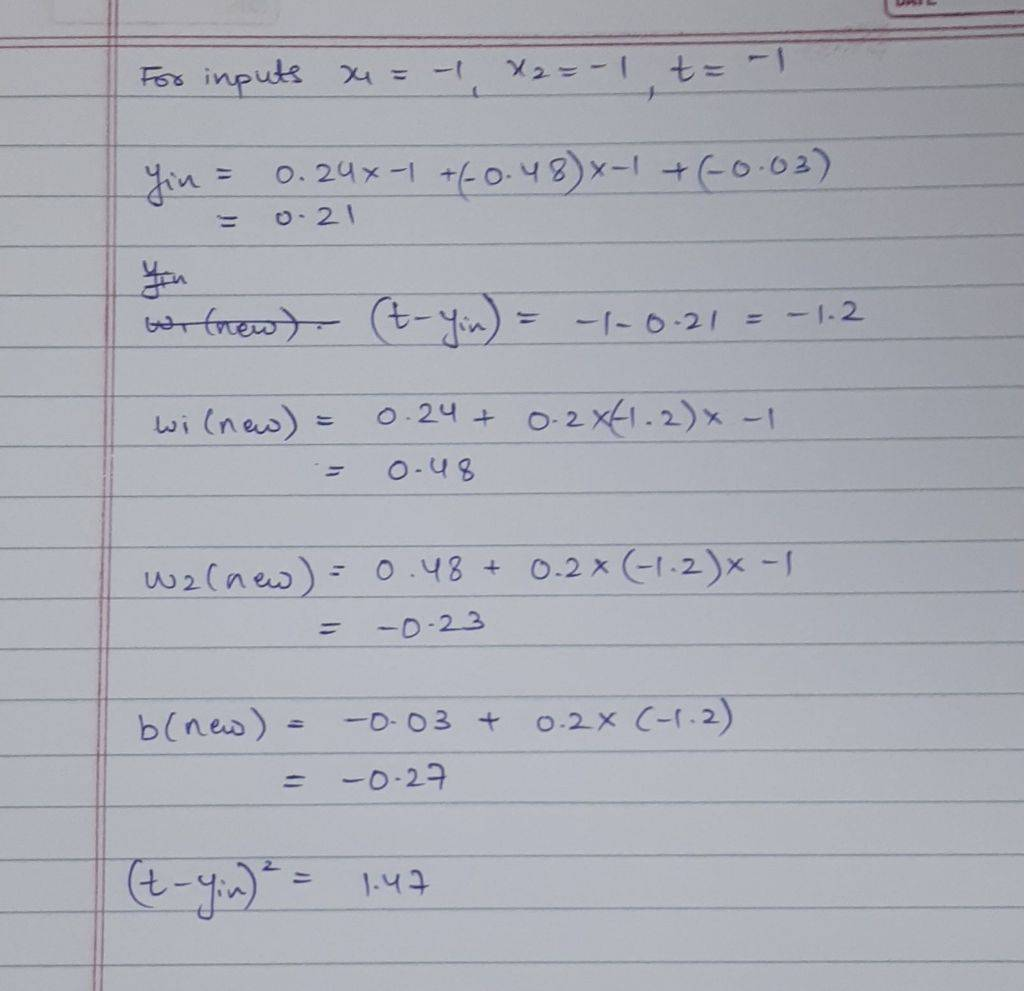 For inputs x1 = -1, x2 = -1, t = -1
yin = 0.24x-1 +(-0.48)x-1 +(-0.03)
= 0.21
yin
w1 (new) = (t-yin) = -1-0.21 = -1.2
wi (new) = 0.24 + 0.2x(-1.2)x -1
= 0.48
w2 (new) = 0.48 + 0.2x(-1.2)x -1
= -0.23
b(new) = -0.03 + 0.2x (-1.2)
= -0.27
(t-yin)² = 1.47